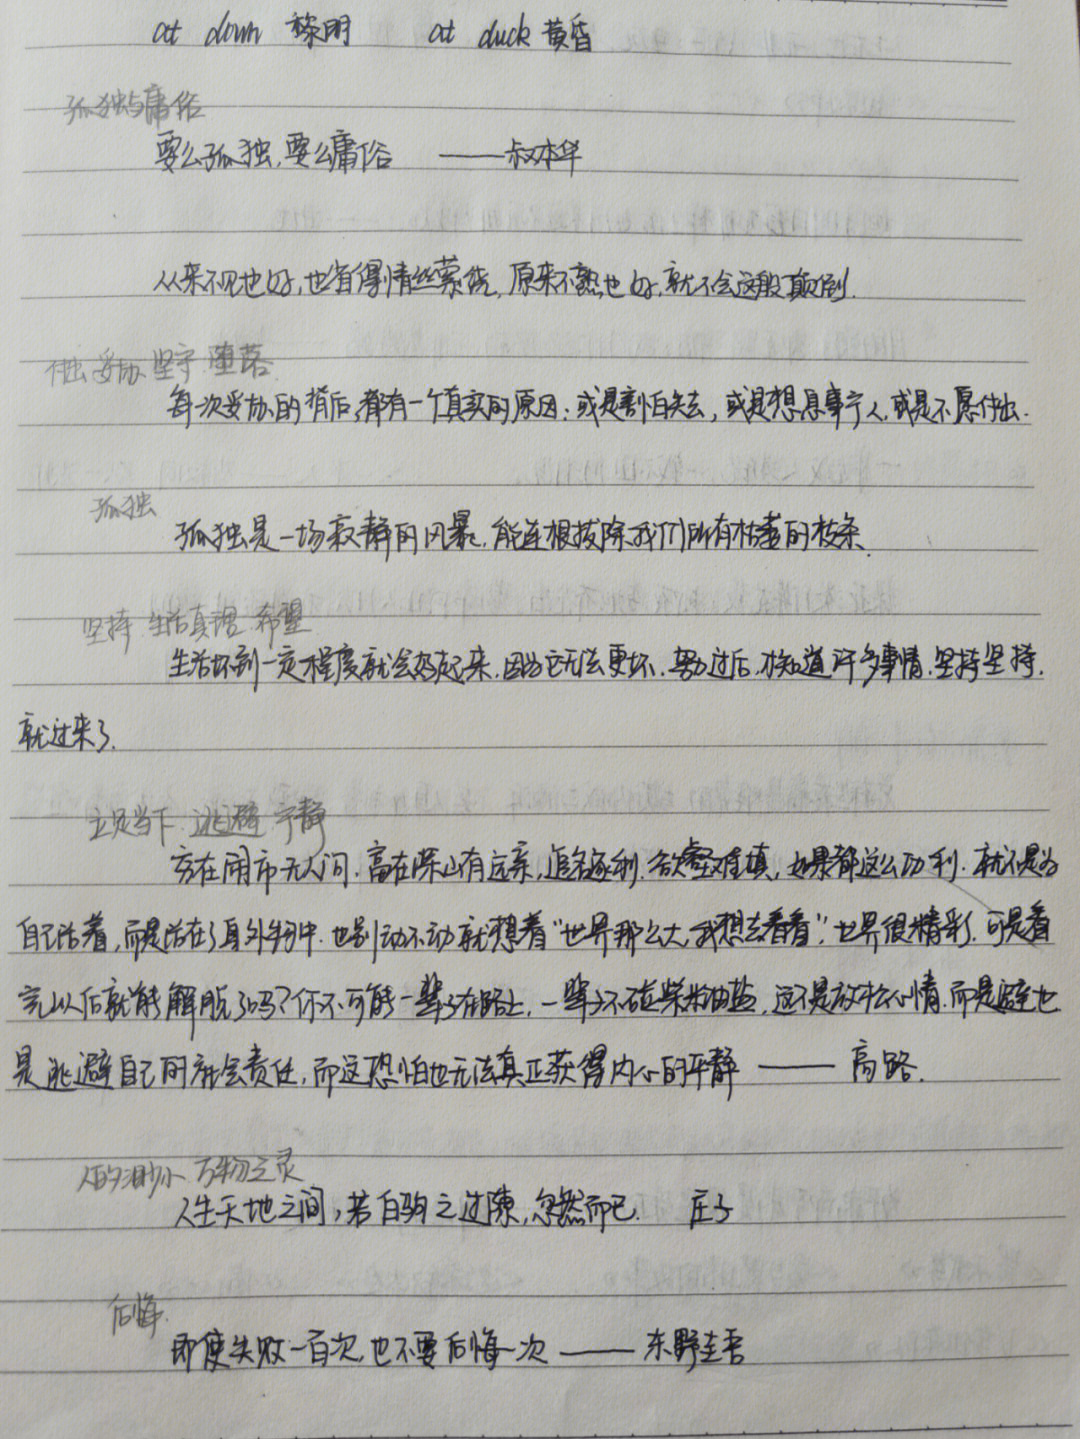 at down 黎明 at duck 黄昏
孤独与庸俗
要么孤独,要么庸俗 ——叔本华
从来不见也好,也省得情丝萦绕,原来不熟也好,就不会这般颠倒.
付出 妥协 坚守 堕落
每次妥协的背后,都有一个真实的原因:或是害怕失去,或是想息事宁人,或是不愿付出.
孤独
孤独是一场寂静的风暴,能连根拔除我们所有枯萎的枝条.
坚持 生活真谛 希望
生活坏到一定程度就会好起来,因为它无法更坏.努力过后,才知道许多事情.坚持坚持,
就过来了.
立足当下 逃避 宁静
穷在闹市无人问.富在深山有远亲,追名逐利.欲壑难填,如果都这么功利.就不是为
自己活着,而是活在了身外物中.也别动不动就想着“世界那么大,我想去看看”.世界很精彩.可是看
完以后就能解脱了吗?你不可能一辈子在路上,一辈子不碰柴米油盐.这不是放松心情.而是逃避也
是逃避自己的社会责任,而这恐怕也无法真正获得内心的平静 —— 高路.
人的渺小 万物之灵
人生天地之间,若白驹之过隙,忽然而已. 庄子
后悔
即使失败一百次,也不要后悔一次 —— 东野圭吾